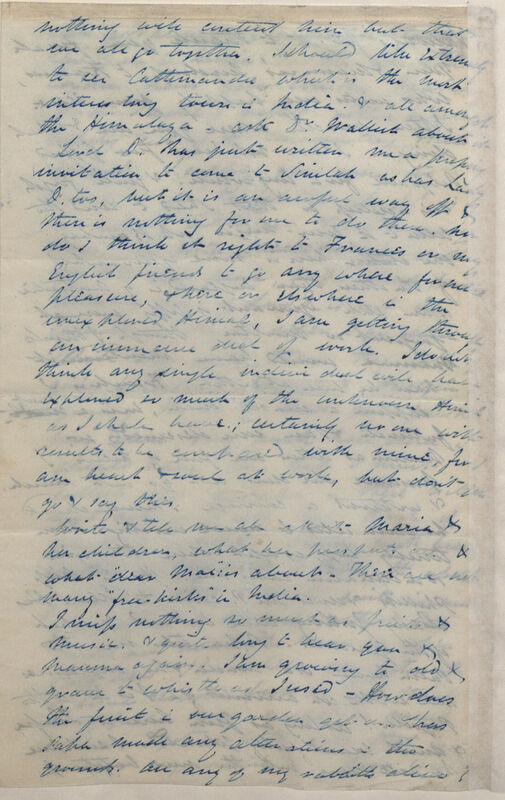 nothing will content him but that
we all go together. I should like extremely
to see Cattamandu which is the most
interesting town in India & all among
the Himalaya - ask Dr. Wallich about
Lord D. has just written me a
invitation to come to Simlah as has Lady
D. too, but it is an awful way off &
there is nothing for me to do there. nor
do I think it right to Frances or my
English friends to go any where for mere
pleasure, & here or elsewhere in the
unexplored Himal, I am getting through
an immense deal of work. I do not
think any single individual will have
explored so much of the unknown Him
as I shall have; certainly no one with
results to be compared with mine, for I
am heart & soul at work, but don't
go & say this.
Write & tell me all about Maria &
her children, what her prospects are &
what "dear Ma" is about - There are not
many "free-kirks" in India.
I miss nothing so much as fruit &
music. & quite long to hear you &
mamma again. I am growing to old &
grave to whistle as I used - How does
the fruit in our garden get on. has
Papa made any alterations in the
grounds. are any of my rabbits alive?